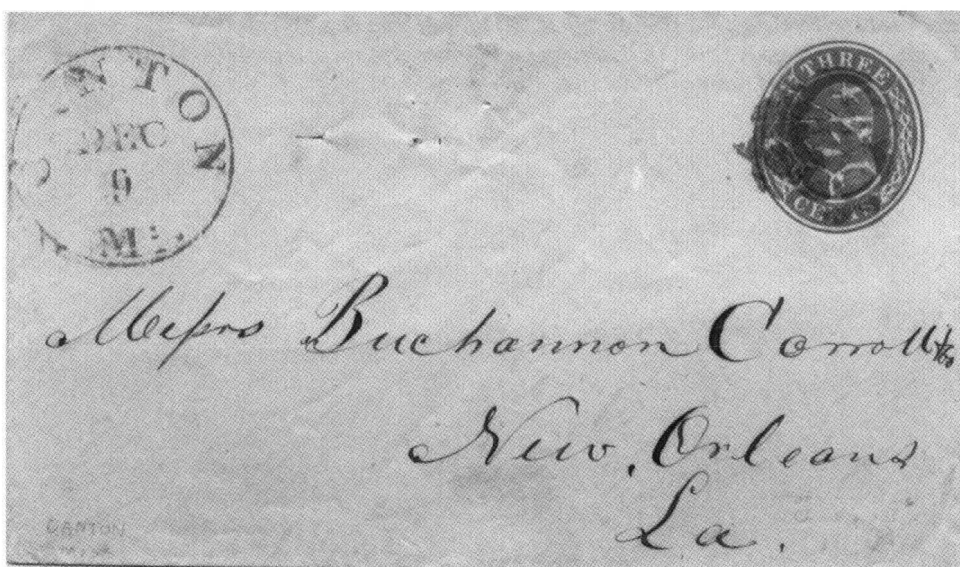 CANTON
DEC
9
Mi.
THREE
CENTS
Messrs Buchannon Carroll & Co
New, Orleans
La.
CANTON